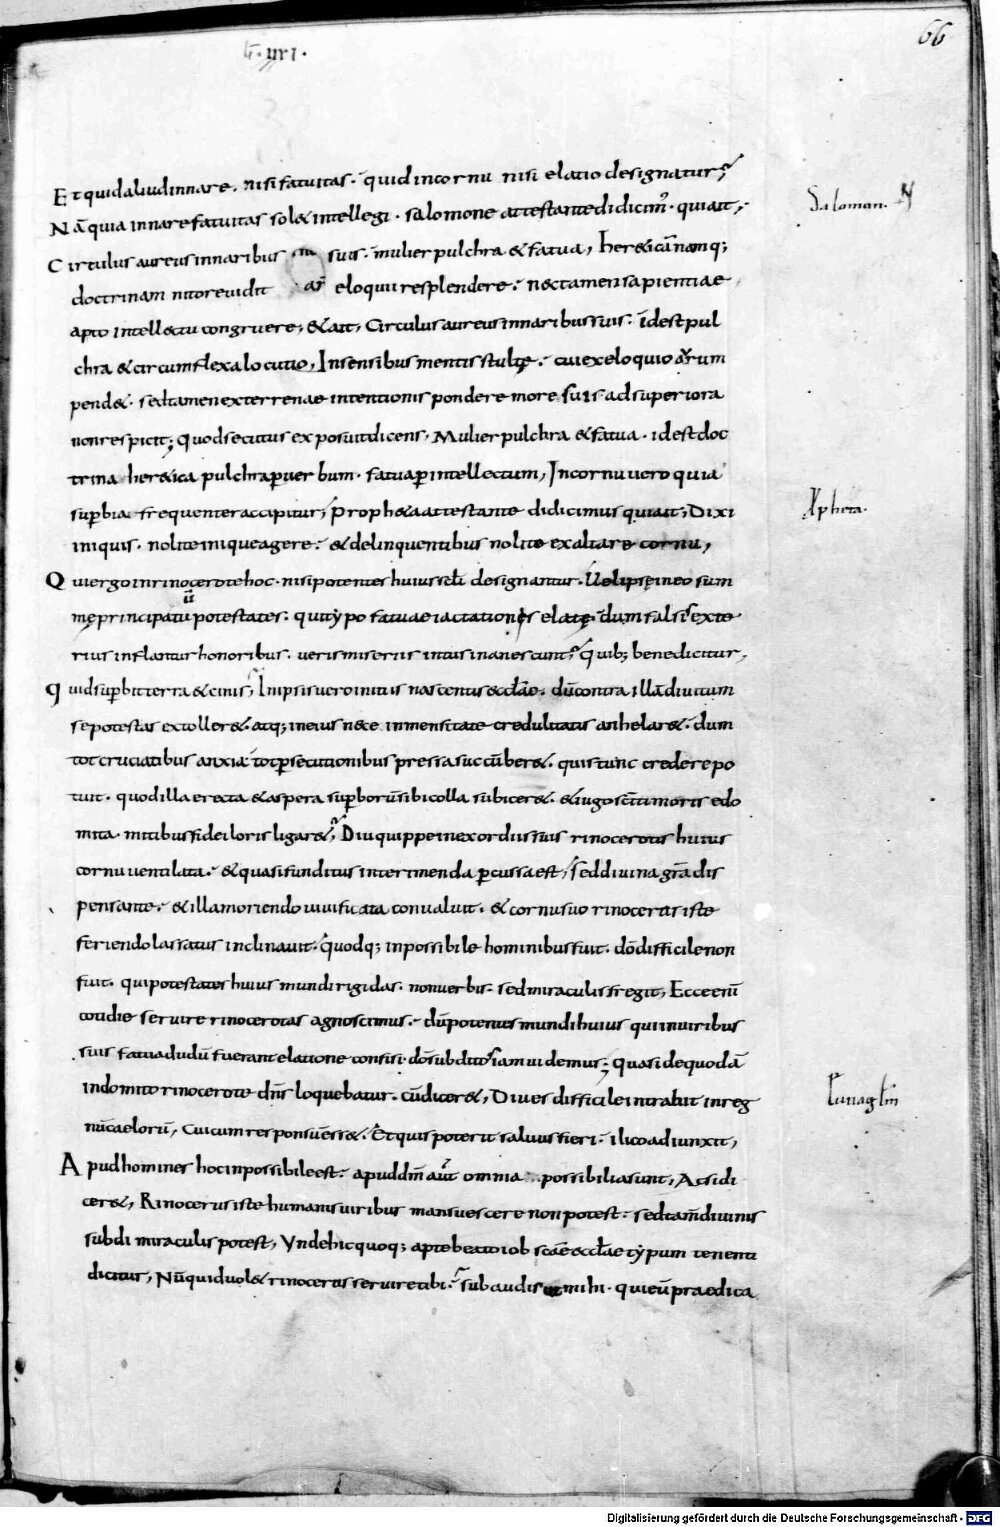 66
G. IIII.
Et quid aliud in nare. nisi fatuitas. quid in cornu nisi elatio designatur;
Nā quia in nare fatuitas sol& intellegi. salomone attestante didicim᷒. qui ait,
Salomon.
Circulus aureus in naribus suis. mulier pulchra & fatua, her&icā namq;
doctrinam nitore vidit eloquii resplendere. nec tamen sapientiae
apto intellectu congruere, & ait, Circulus aureus in naribus suis. idest pul
chra & circumflexa locutio, In sensibus mentis stultę. cui ex eloquio aurum
pend&. sed tamen ex terrenae intentionis pondere more suis. ad superiora
non respicit; quod secutus exposuit dicens, Mulier pulchra & fatua. id est doc
trina her&ica pulchra ꝑ verbum. fatua ꝑ intellectum, In cornu vero quia
suꝑbia frequenter accipitur, Proph&a attestante didicimus qui ait, Dixi
ppheta.
iniquis. nolite inique agere. & delinquentibus nolite exaltare cornu,
Qui ergo in rinocerote hoc. nisi potentes huius scłi designantur. vel ipsę in eo sum
mę principatuū potestates. qui typo fatuae iactationis elatę. dum falsis exte
rius inflantur honoribus. veris miseriis intus inanescunt; quib; bene dicitur,
Quid suꝑbit terra & cinis, In ipsis vero initiis nascentis eccłae. dū contra illā divitum
se potestas extoller&. atq; in eius nece inmensitate crudelitatis anhelar&. dum
tot cruciatibus anxia. tot ꝑsecutionibus pressa succūber&. quis tunc credere po
tuit. quod illa erecta & aspera suꝑborū sibi colla subicer&. & iugo sc̄i timoris edo
mita. mitibus fidei loris ligar&, Diu quippe in exordiis suis rinocerotis huius
cornu ventilata. & quasi funditus interimenda ꝑcussa est, sed divina gratia dis
pensante. & illa moriendo vivificata convaluit. & cornu suo rinoceros iste
feriendo lassatus inclinavit. quodq; inpossibile hominibus fuit. dō difficile non
fuit. qui potestates huius mundi rigidas. non verbis. sed miraculis fregit, Ecce enī
cotidie servire rinocerotas agnoscimus. dū potentes mundi huius qui in viribus
suis fatua dudū fuerant elatione confisi. dō subditos iam videmus; quasi de quodā
indomito rinocerote dn̄s loquebatur. cū dicer&, Dives difficile intrabit in reg
Evuaglm
nū caelorū, Cui cum responsū ess&. Et quis poterit salvus fieri. ilico adiunxit,
Apud homines hoc inpossibile est. apud dm̄ aut omnia possibilia sunt, Ac si di
cer&, Rinoceros iste humanis viribus mansuescere non potest. sed tam̄ divinis
subdi miraculis potest, Unde hic quoq; apte beato iob sc̄ae eccłae typum tenenti
dicitur, Nūquid vol& rinoceros servire tibi. subaudis mihi. qui eū praedica